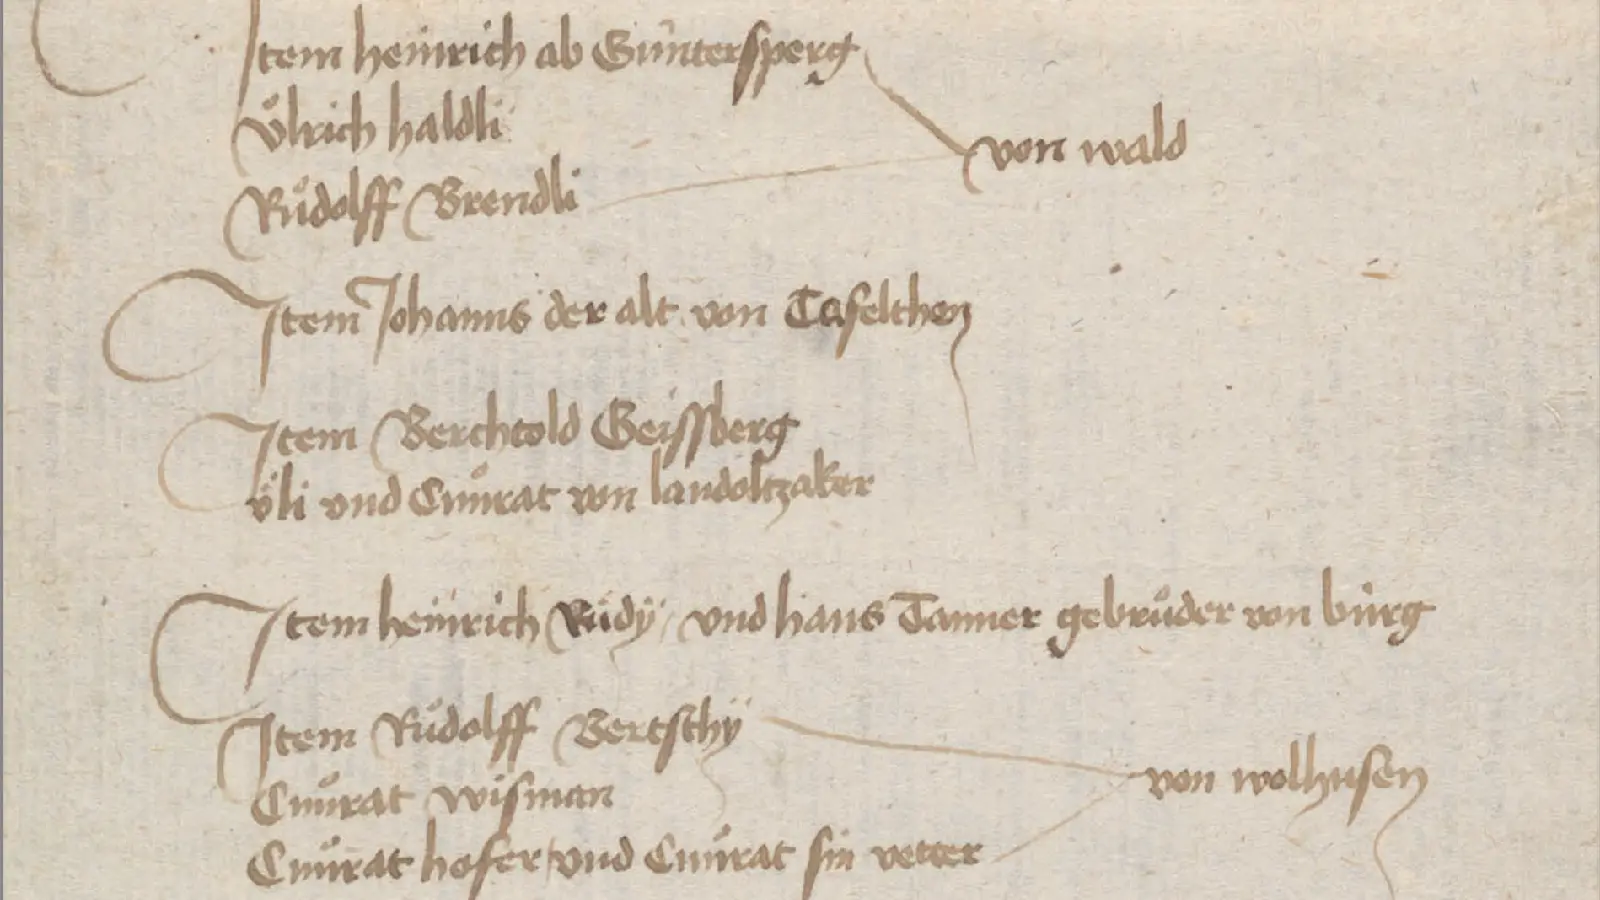 Item heinrich ab Guntersperg
Ůlrich haldli
von wald
Růdolff Brendli
Item Johanns der alt von Taselthen
Item Berchtold Geissberg
Ůli vnd Cůnrat von landoltzaker
Item heinrich Růdÿ vnd hans Tanner gebrůder von bůrg
Item Růdolff Bertschÿ
von wolhusen
Cůnrat wisman
Cůnrat hofer vnd Cůnrat sin vetter